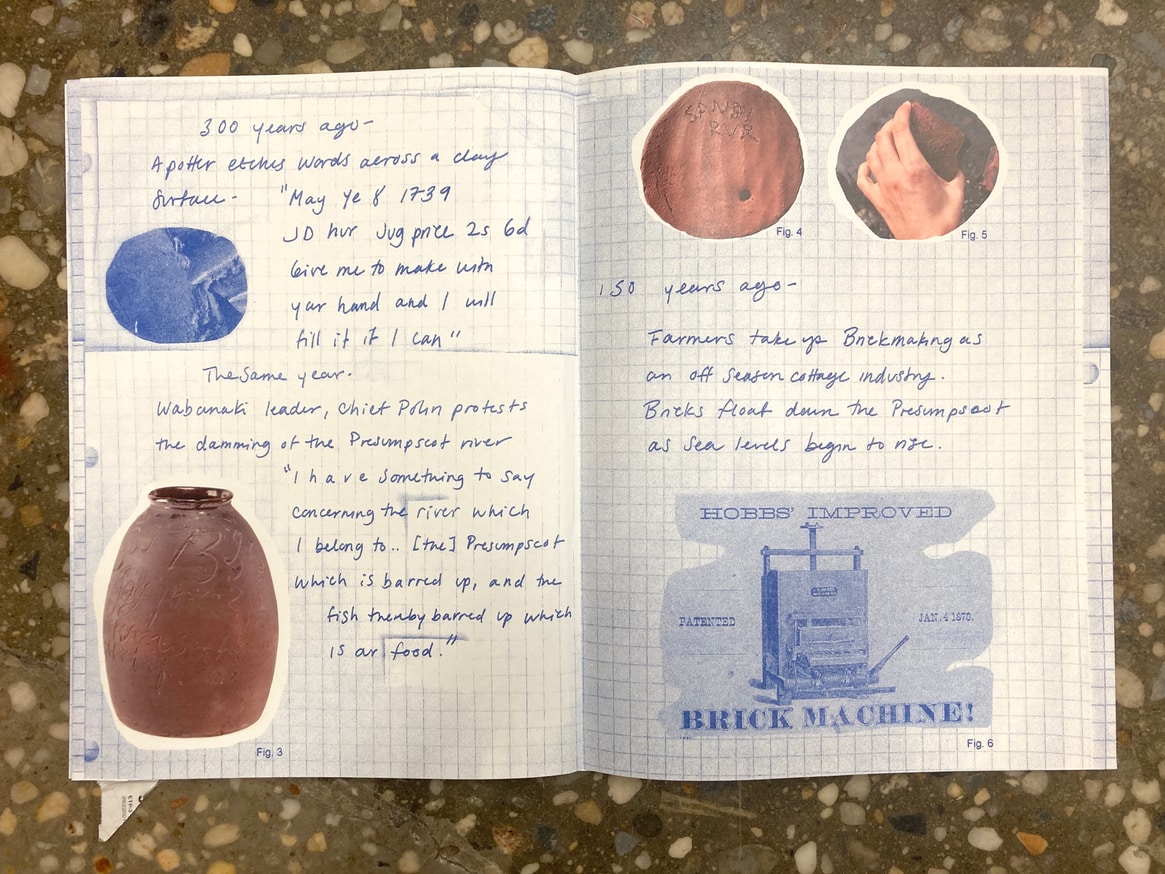 300 years ago-
A potter etches words across a clay
surface. "May Ye 8 1739
JD hur Jug price 2s 6d
Give me to make with
your hand and I will
fill it if I can"
The Same year.
Wabanaki leader, Chief Polin protests
the damming of the Presumpscot river
"I have something to say
concerning the river which
I belong to.. [the] Presumpscot
which is barred up, and the
fish thereby barred up which
is our food."
Fig. 3
SANDY
RVR
Fig. 4
Fig. 5
150 years ago-
Farmers take up Brickmaking as
an off season cottage industry.
Bricks float down the Presumpscot
as sea levels begin to rise.
HOBBS' IMPROVED
PATENTED
JAN. 4 1870.
BRICK MACHINE!
Fig. 6